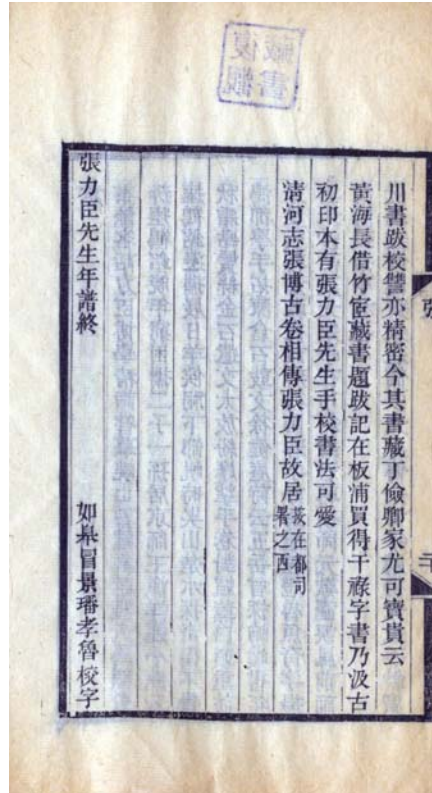 川書跋校讐亦精密今其書藏丁儉卿家尤可寶貴云
黃海長借竹宧藏書題跋記在板浦買得干祿字書乃汲古
初印本有張力臣先生手校書法可愛
淸河志張博古卷相傳張力臣故居茲在都司署之西
張力臣先生年譜終
如臯冒景璠孝魯校字